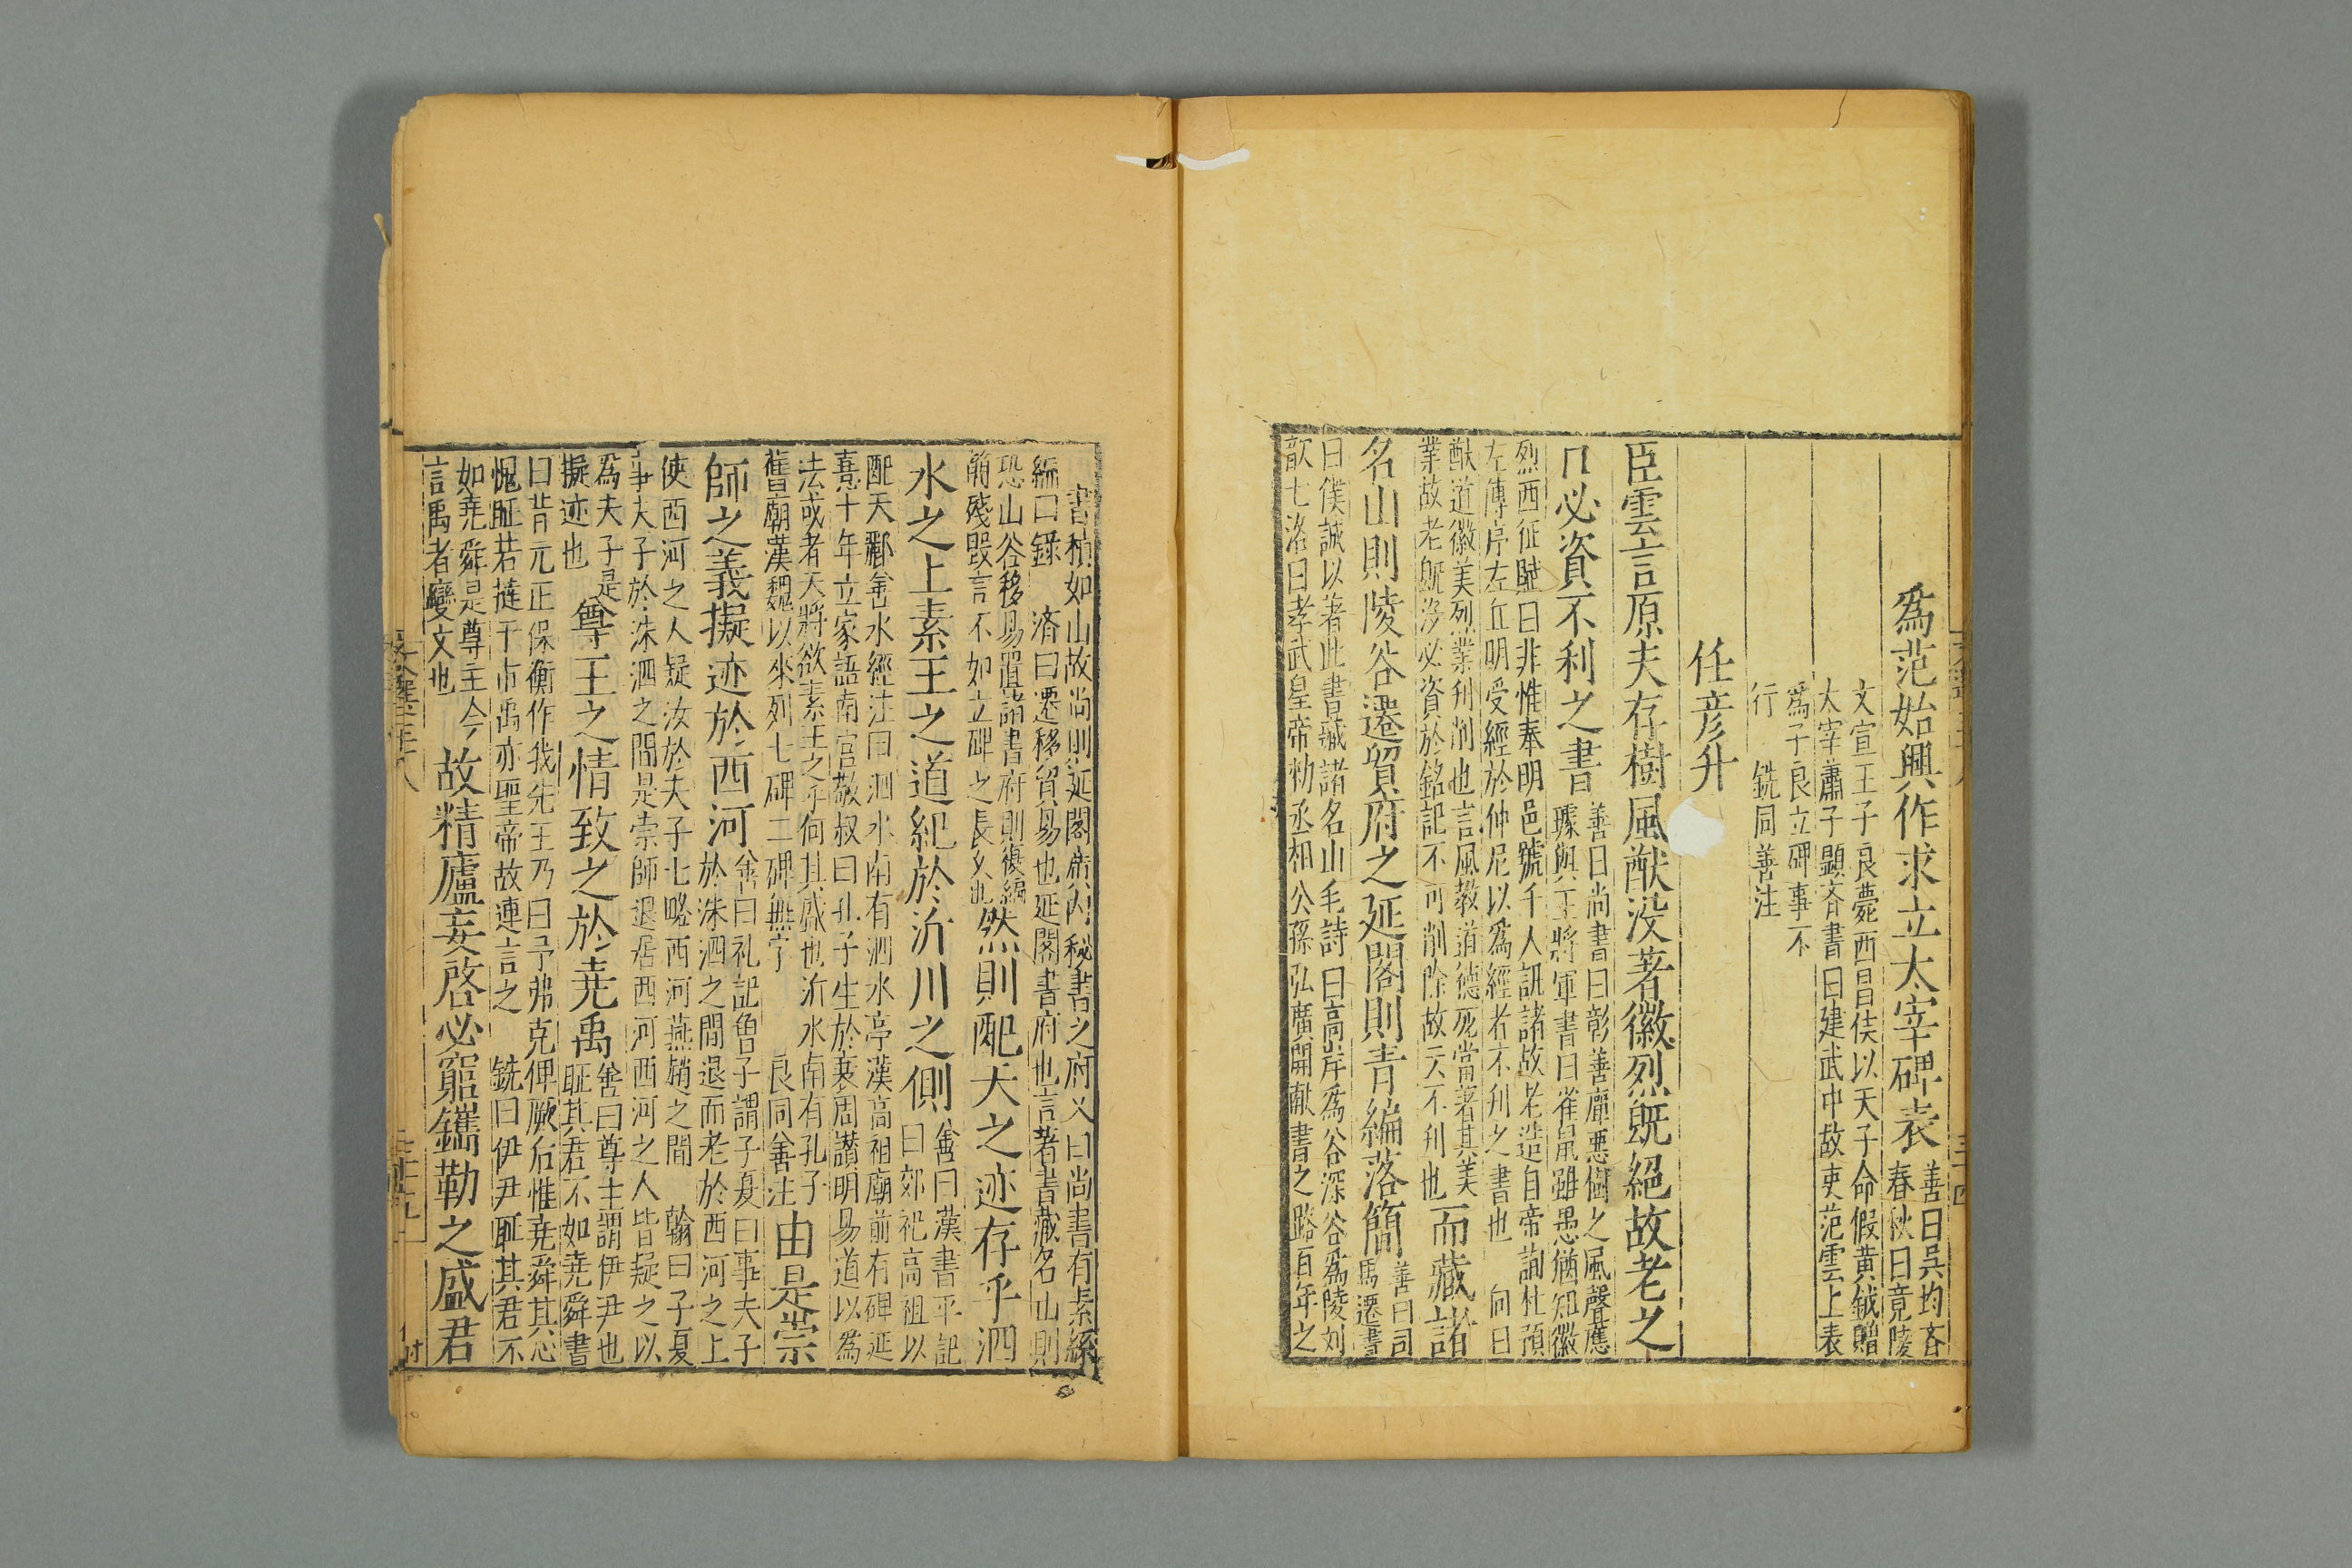 爲范始興作求立太宰碑表
善曰吳均斉
春秋曰竟陵
文宣王子良薨西昌侯以天子命假黄鉞贈
太宰蕭子顯斉書曰建武中故吏范雲上表
爲子良立碑事不
行 銑同善注
任彦升
臣雲言原夫存樹風猷没著徽烈旣絕故老之
口必資不刊之書
善曰尚書曰彰善癉惡樹之風聲應
璩與王將軍書曰雀鼠雖愚猶知徽
烈西征賦曰非惟奉明邑號千人訊諸故老造自帝詢杜預
左傳序左丘明受經於仲尼以爲經者不刋之書也 向曰
猷道徽美烈業刋削也言風敎道德死當著其美
業故老旣没必資於銘記不可削除故云不刋也
而藏諸
名山則陵谷遷貿府之延閣則青編落簡
善曰司
馬遷書
曰僕誠以著此書藏諸名山毛詩曰高岸爲谷深谷爲陵刘
歆七洛曰孝武皇帝勑丞相公孫弘廣開献書之路百年之
書積如山故尚則延閣廣内秘書之府又曰尚書有青絲
編曰錄 濟曰遷移貿易也延閣書府也言著書藏名山則
恐山谷移易置諸書府則復編
簡殘毀言不如立碑之長久也
然則配天之迹存乎泗
水之上素王之道紀於沂川之側
善曰漢書平記
曰郊祀高祖以
配天酈善水經注曰泗水南有泗水亭漢高祖廟前有碑延
熹十年立家語南宫敬叔曰孔子生於衰周讃明易道以爲
法或者天將欲素王之乎何其盛也沂水南有孔子
舊廟漢魏以來列七碑二碑無字 良同善注
由是崇
師之義擬迹於西河
善曰礼記魯子謂子夏曰事夫子
於洙泗之間退而老於西河之上
使西河之人疑汝於夫子七略西河燕趙之間 翰曰子夏
事夫子於洙泗之間是崇師退居西河西河之人皆疑之以
爲夫子是
擬迹也
尊王之情致之於尭禹
善曰尊主謂伊尹也
耻其君不如尭舜書
曰昔元正保衡作我先王乃曰予弗克俾厥后惟尭舜其心
愧耻若撻于市禹亦聖帝故連言之 銑曰伊尹耻其君不
如尭舜是尊主今
言禹者變文也
故精廬妄啓必窮鐫勒之盛君